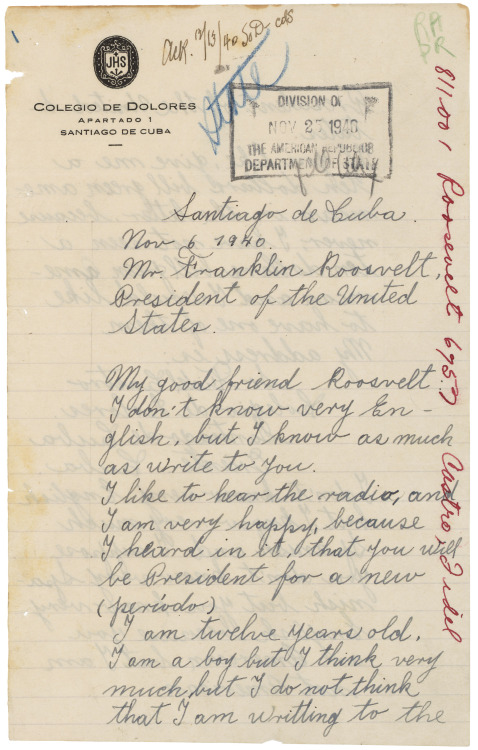 Ack. 12/13/40 SoD- cds
State
RA
DR
JHS
COLEGIO DE DOLORES
APARTADO 1
SANTIAGO DE CUBA
DIVISION OF
NOV 27 1940
THE AMERICAN REPUBLICS
DEPARTMENT OF STATE
811.001 Roosevelt
Castro, Fidel
Santiago de Cuba.
Nov 6 1940.
Mr. Franklin Roosvelt,
President of the United
States.
My good friend Roosvelt
I don't know very En-
glish, but I know as much
as write to you.
I like to hear the radio, and
I am very happy, because
I heard in it, that you will
be President for a new
(período)
I am twelve years old.
I am a boy but I think very
much, but I do not think
that I am writting to the